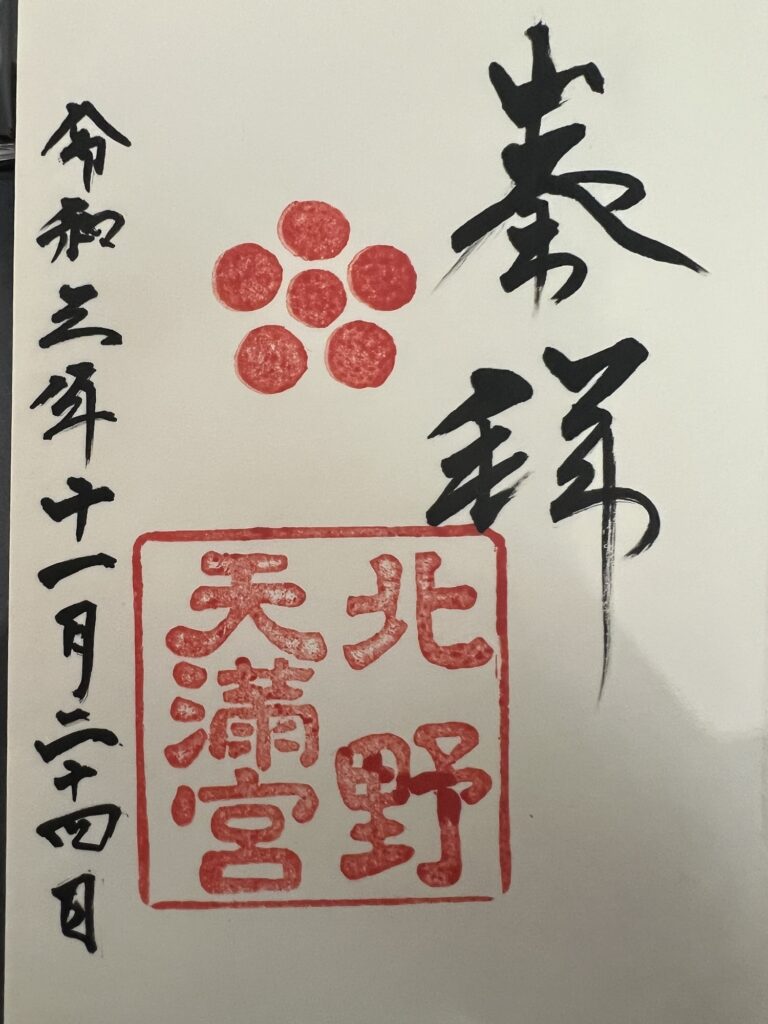 奉拜
北野
天満宮
令和三年十一月二十四日